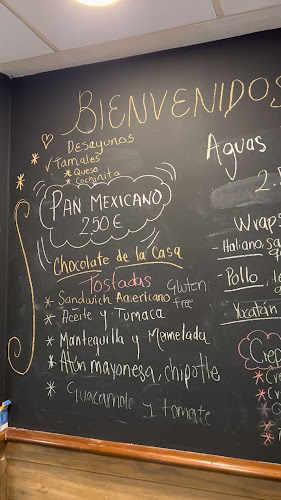 BIENVENIDOS
Desayunos
Tamales
* Queso
* Cochinita
PAN MEXICANO
2,50 €
Chocolate de la Casa
Tostadas
* Sandwich Americano Gluten free
* Aceite y Tumaca
* Mantequilla y Mermelada
* Atún mayonesa, chipotle
* Guacamole y tomate
Aguas
2.
Wraps
- Italiano,
- Pollo,
Yucatán